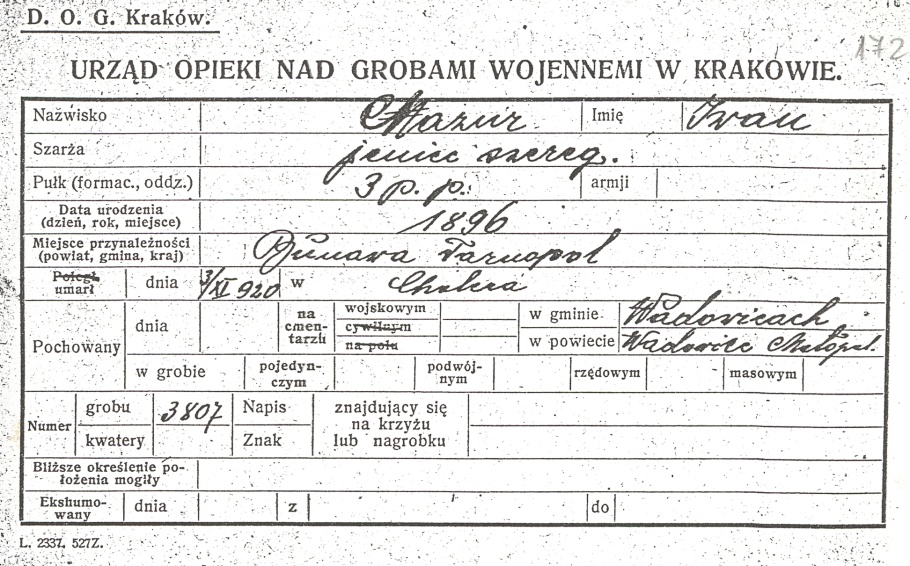 D. O. G. Kraków.
172
URZĄD OPIEKI NAD GROBAMI WOJENNEMI W KRAKOWIE.
Nazwisko Mazur Imię Iwan
Szarża jeniec szereg.
Pułk (formac., oddz.) 3 p. p. armji
Data urodzenia
(dzień, rok, miejsce) 1896
Miejsce przynależności
(powiat, gmina, kraj) Tarnopol
Poległ
umarł dnia 3/XI 920 w Cholera
Pochowany dnia na cmen-tarzu wojskowym w gminie Wadowicach
cywilnym
na polu w powiecie Wadowice Małopol.
w grobie pojedyn-czym podwój-nym rzędowym masowym
Numer grobu 3807 Napis znajdujący się
na krzyżu
kwatery Znak lub nagrobku
Bliższe określenie po-
łożenia mogiły
Ekshumo-
wany dnia z do
L. 2337. 527Z.